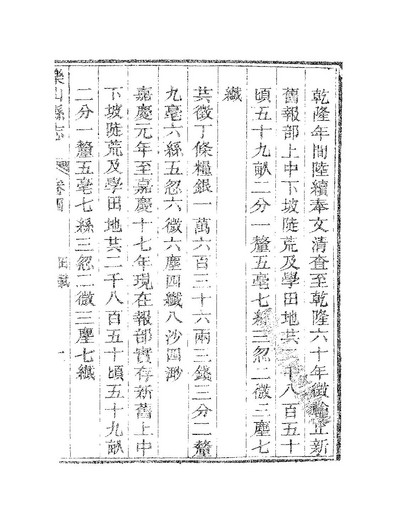 乾隆年間陸續奉文清查至乾隆六十年徵輸並新
舊報部上中下坡陡荒及學田地共二千八百五十
頃五十九畝二分一釐五毫七絲三忽二微三塵七
纖
共徵丁條糧銀一萬六百三十六兩三錢三分二釐
九毫六絲五忽六微六塵四纖八沙四渺
嘉慶元年至嘉慶十七年現在報部實存新舊上中
下坡陡荒及學田地共二千八百五十頃五十九畝
二分一釐五毫七絲三忽二微三塵七纖
樂山縣志 卷四 田賦 一